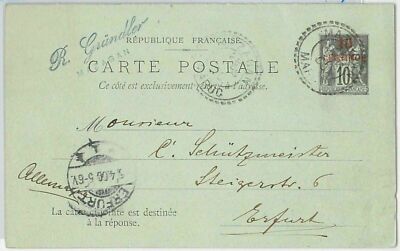 R. Gründler
RÉPUBLIQUE FRANÇAISE
CARTE POSTALE
Ce côté est exclusivement réservé à l'adresse.
10
CENTIMOS
10
Monsieur
C. Schützmeister
Steigerstr. 6
Allemagne
Erfurt
ERFURT
La carte ci-jointe est destinée
à la réponse.